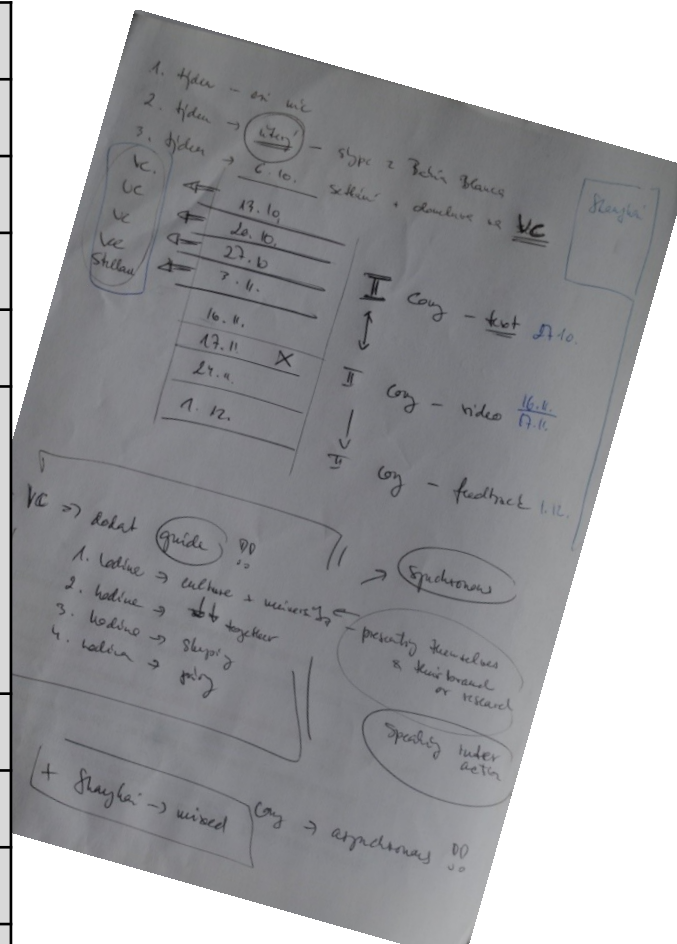 1. týden – ani nic
2. týden → úterý – skype z Bahía Blanca
3. týden → 6.10. setkání + domluva na VC
Shanghai
VC.
VC
VC
VC
13.10.
20.10.
27.10
3.11.
16.11.
17.11 X
24.11.
1. 12.
II Cory – text 27.10.
II Cory – video 16.11. 17.11.
II Cory – feedback 1.12.
VC => dodat guide !!
1. hodina → culture + university
2. hodina → together
3. hodina → skupiny
4. hodina → páry
→ Synchronous
– presenting themselves
& their brand
or research
Speaking inter
action
+ Shanghai → mixed
Cory → asynchronous !!